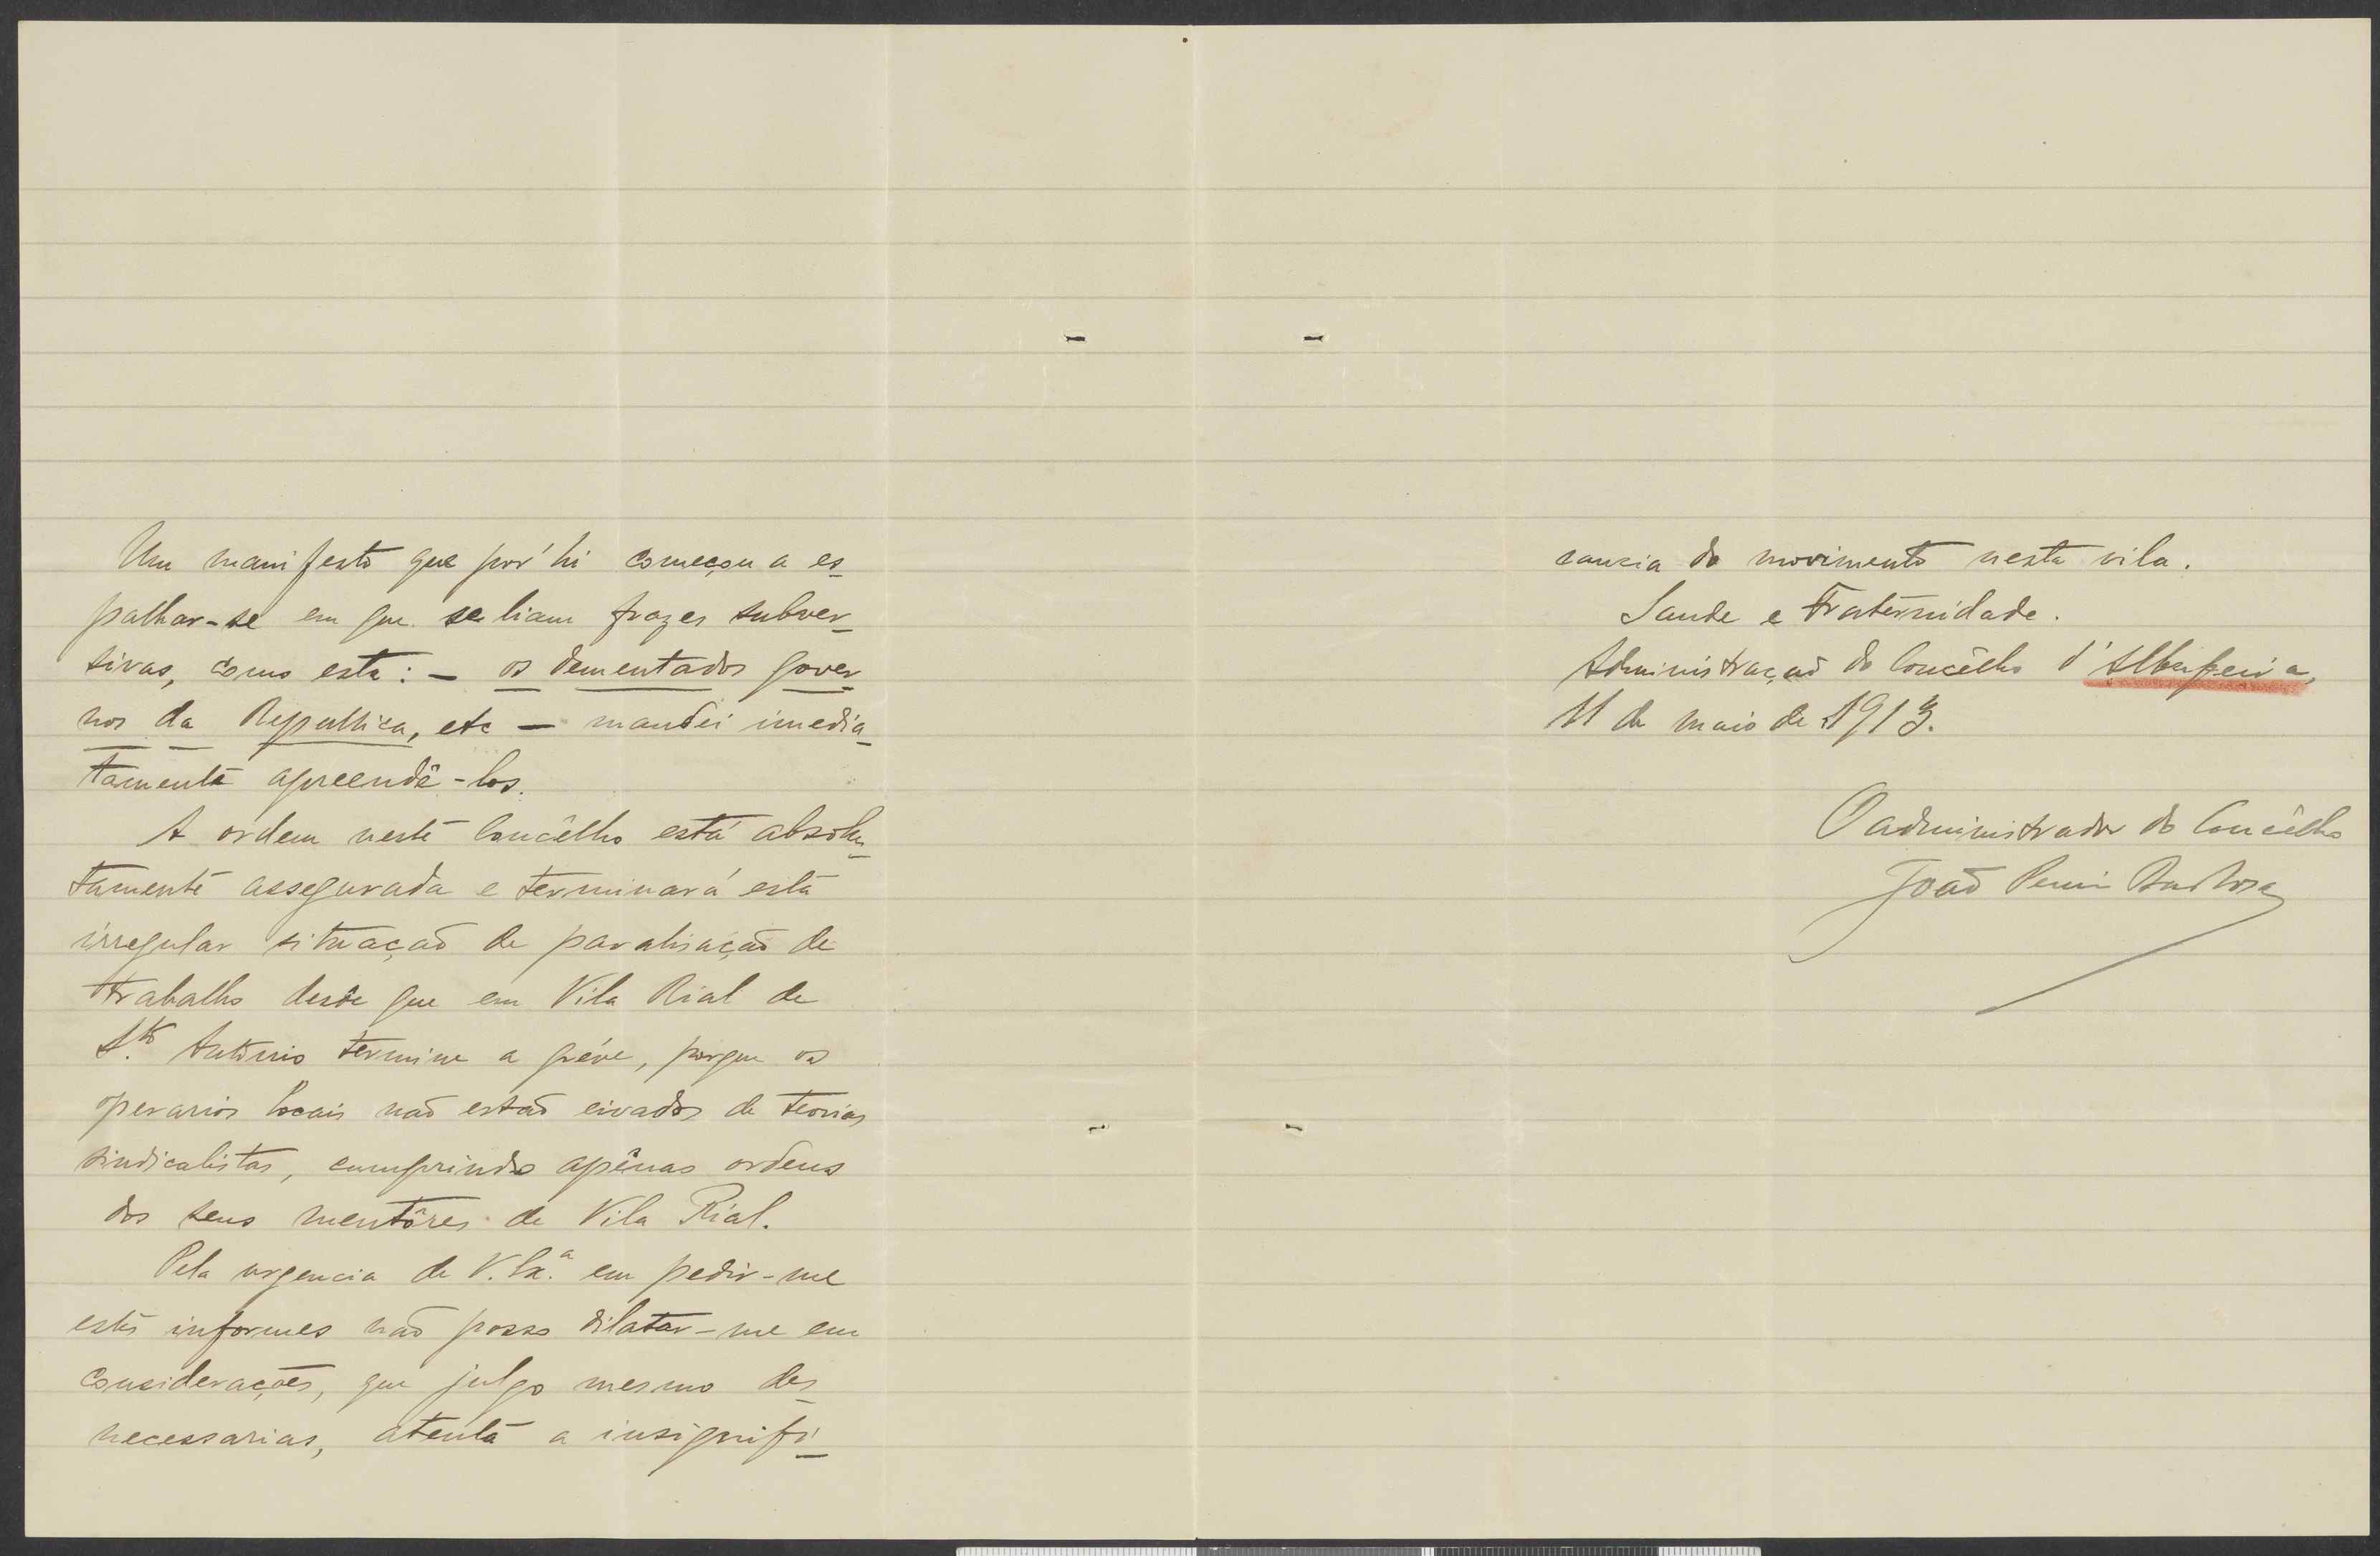 Um manifesto que por'hi começou a es-
palhar-se em que se liam frazes subver-
sivas, como esta: — os dementados gover-
nos da Republica, etc — mandei imedia-
tamente apreendê-los.
A ordem neste Concêlho está absolu-
tamente assegurada e terminará esta
irregular situação de paralisação de
trabalho desde que em Vila Rial de
S.to António termine a gréve, porque os
operarios locais não estão eivados de teorias
sindicalistas, cumprindo apênas ordens
dos seus mentôres de Vila Rial.
Pela urgencia de V. Ex.ª em pedir-me
estes informes não posso dilatar-me em
considerações, que julgo mesmo des-
necessarias, atenta a insignifi-
cancia do movimento nesta vila.
Saude e Fraternidade.
Administração do Concêlho d'Albufeira,
11 de maio de 1913.
O administrador do Concêlho
João